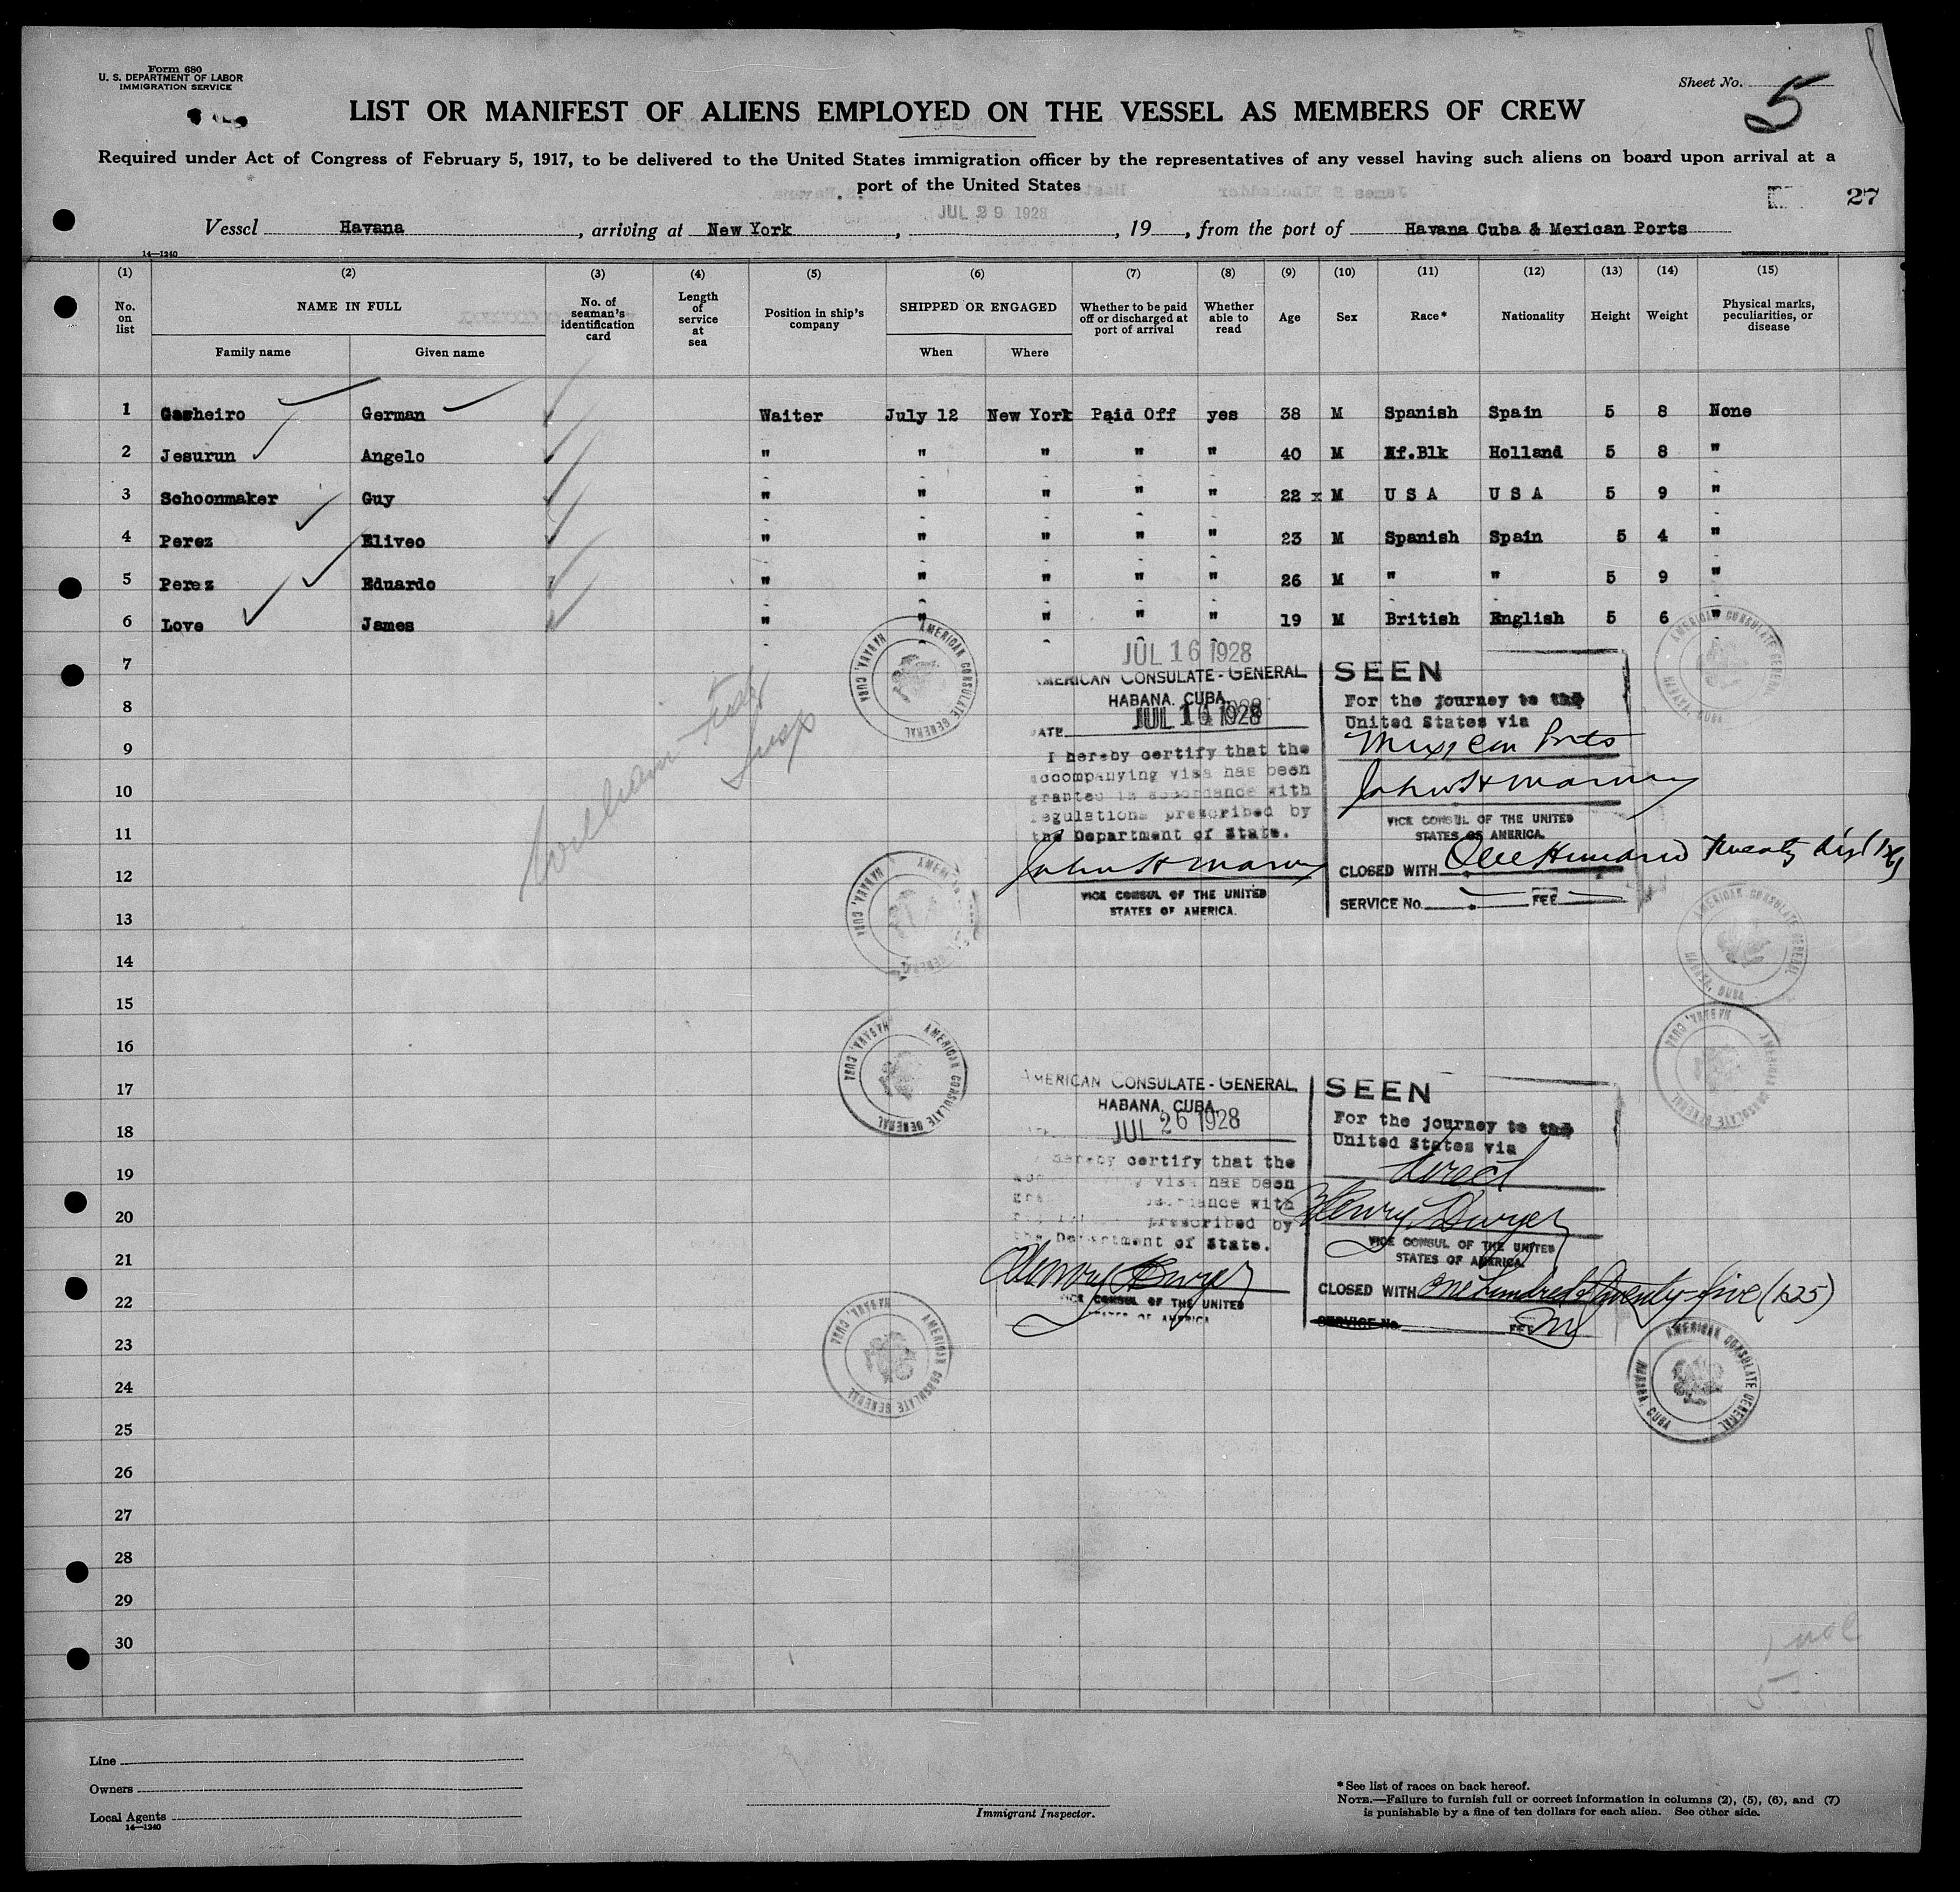 Form 680
U. S. DEPARTMENT OF LABOR
IMMIGRATION SERVICE
Sheet No. 5
LIST OR MANIFEST OF ALIENS EMPLOYED ON THE VESSEL AS MEMBERS OF CREW
Required under Act of Congress of February 5, 1917, to be delivered to the United States immigration officer by the representatives of any vessel having such aliens on board upon arrival at a
port of the United States
27
JUL 29 1928
Vessel Havana, arriving at New York, , 19 , from the port of Havana Cuba & Mexican Ports
14—1240
(1) (2) (3) (4) (5) (6) (7) (8) (9) (10) (11) (12) (13) (14) (15)
No. on list
NAME IN FULL
Family name
Given name
No. of seaman's identification card
Length of service at sea
Position in ship's company
SHIPPED OR ENGAGED
When
Where
Whether to be paid off or discharged at port of arrival
Whether able to read
Age
Sex
Race*
Nationality
Height
Weight
Physical marks, peculiarities, or disease
1 Gasheiro German Waiter July 12 New York Paid Off yes 38 M Spanish Spain 5 8 None
2 Jesurun Angelo " " " " " 40 M Af.Blk Holland 5 8 "
3 Schoonmaker Guy " " " " " 22 x M U S A U S A 5 9 "
4 Perez Eliveo " " " " " 23 M Spanish Spain 5 4 "
5 Perez Eduardo " " " " " 26 M " " 5 9 "
6 Love James " " " " " 19 M British English 5 6 "
7
8
9
10
11
12
13
14
15
16
17
18
19
20
21
22
23
24
25
26
27
28
29
30
AMERICAN CONSULATE GENERAL HABANA, CUBA
JUL 16 1928
AMERICAN CONSULATE-GENERAL
HABANA, CUBA
JUL 14 1928
DATE
I hereby certify that the
accompanying visa has been
granted in accordance with
regulations prescribed by
the Department of State.
VICE CONSUL OF THE UNITED
STATES OF AMERICA.
SEEN
For the journey to the
United States via
Mexican Ports
VICE CONSUL OF THE UNITED
STATES OF AMERICA.
CLOSED WITH One Hundred Twenty
SERVICE No. FEE
AMERICAN CONSULATE GENERAL HABANA, CUBA
AMERICAN CONSULATE GENERAL HABANA, CUBA
AMERICAN CONSULATE GENERAL HABANA, CUBA
AMERICAN CONSULATE GENERAL HABANA, CUBA
AMERICAN CONSULATE GENERAL HABANA, CUBA
AMERICAN CONSULATE-GENERAL
HABANA, CUBA
JUL 26 1928
hereby certify that the
visa has been
with
prescribed by
the Department of State.
Henry Dwyer
VICE CONSUL OF THE UNITED
STATES OF AMERICA
SEEN
For the journey to the
United States via
direct
Henry Dwyer
VICE CONSUL OF THE UNITED
STATES OF AMERICA.
CLOSED WITH one hundred & twenty-five (125)
SERVICE No. FEE
AMERICAN CONSULATE GENERAL HABANA, CUBA
AMERICAN CONSULATE GENERAL HABANA, CUBA
5
Line
Owners
Local Agents
14—1240
Immigrant Inspector.
*See list of races on back hereof.
NOTE.—Failure to furnish full or correct information in columns (2), (5), (6), and (7)
is punishable by a fine of ten dollars for each alien. See other side.